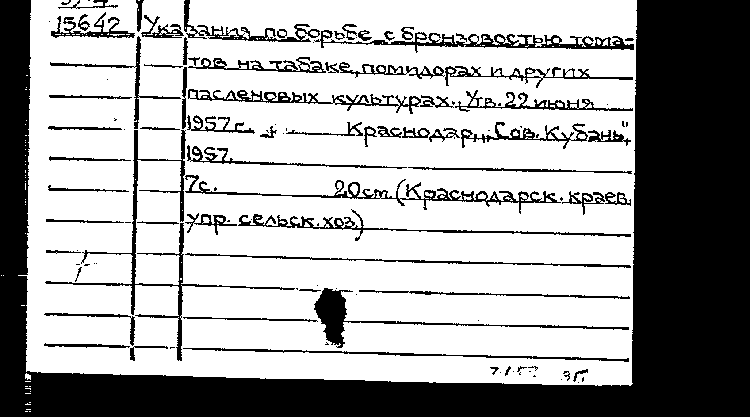 15642 Указания по борьбе с бронзовостью тома-
тов на табаке, помидорах и других
пасленовых культурах. Утв. 22 июня
1957 г. Краснодар, „Сов. Кубань",
1957.
7с. 20 см. (Краснодарск. краев.
упр. сельск. хоз.)